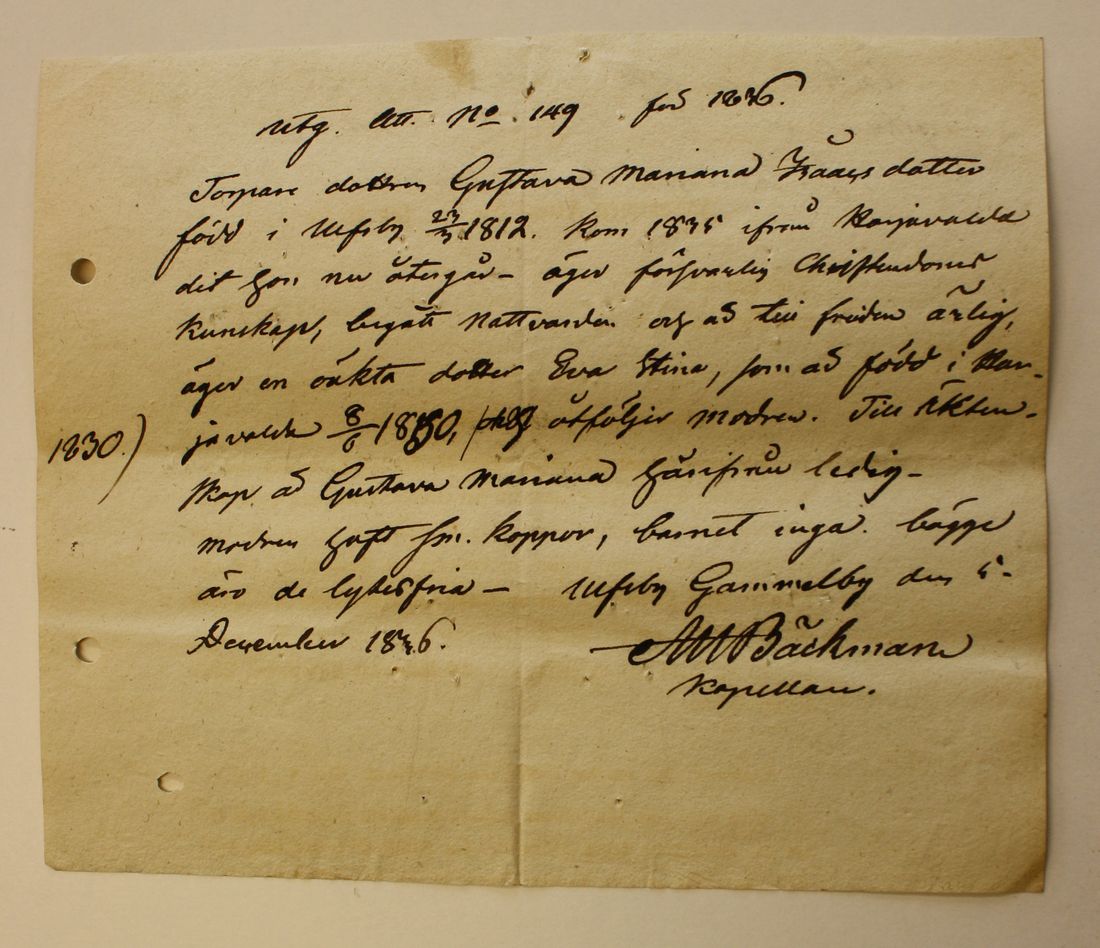 Utg. Att. No 149 för 1836.
Torpare dottren Gustava Mariana Isaacsdotter
född i Ulfsby 23/3 1812. Kom 1835 ifrån Harjavalda
dit hon nu återgår – äger försvarlig Christendoms
kunskap, begått nattvarden och är till frejden ärlig,
äger en oäkta dotter Eva Stina, som är född i Har-
1830.) javalda 8/6 1830, åtföljer modren. Till Äkten-
skap är Gustava Mariana härifrån ledig –
modren haft sm. koppor, barnet inga. bägge
äro de lytesfria – Ulfsby Gammelby den 5.
December 1836. Bäckman
Kapellan.